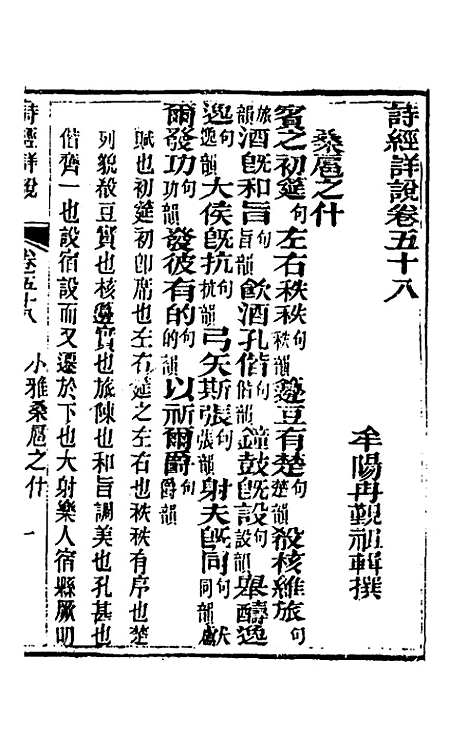 詩經詳說卷五十八
牟陽冉覲祖輯撰
桑扈之什
賓之初筵句左右秩秩秩韻句籩豆有楚楚韻句殽核維旅句
旅韻酒旣和旨旨韻句飮酒孔偕偕韻句鐘鼓旣設設韻句舉醻逸
逸逸韻句大侯旣抗抗韻句弓矢斯張張韻句射夫旣同同韻句獻
爾發功功韻句發彼有的的韻句以祈爾爵爵韻
賦也初筵初卽席也左右筵之左右也秩秩有序也楚
列貌殽豆實也核籩實也旅陳也和旨調美也孔甚也
偕齊一也設宿設而又遷於下也大射樂人宿縣厥明
詩經詳說
卷五十八
小雅桑扈之什
一